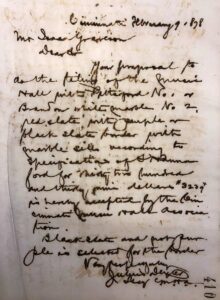 Cincinnati February 9, 1878
Mr Isaac Graveson
Dear Sir
Your proposal to
do the tiling of the Music
Hall with No. 1 or
white No 2,
red slate with purple or
black slate border with
marble according to
Specification of
ford for thirty two hundred
and thirty nine dollars $3239
is hereby accepted by the Cin
cinnati Music Hall Asso
ciation.
Black slate and not pur
ple is selected for the border
Very truly
Julius Dexter